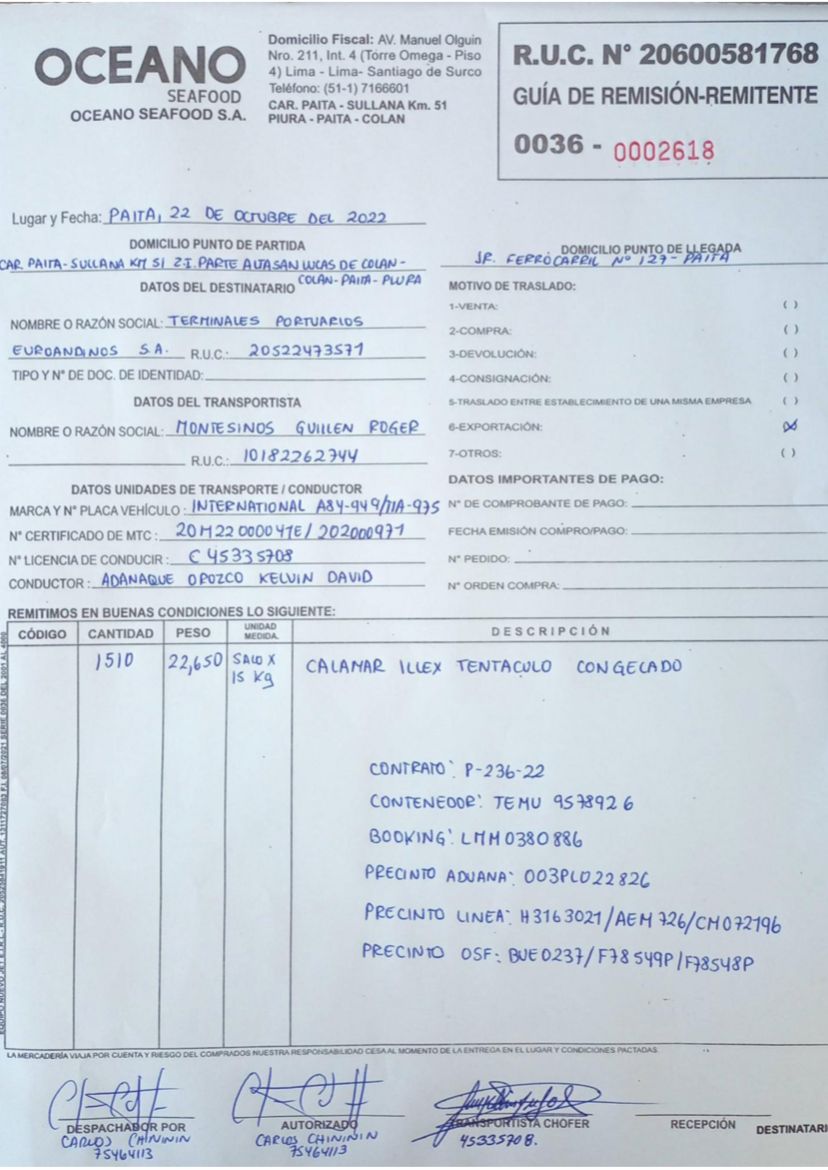 OCEANO
SEAFOOD
OCEANO SEAFOOD S.A.
Domicilio Fiscal: AV. Manuel Olguin
Nro. 211, Int. 4 (Torre Omega - Piso
4) Lima - Lima- Santiago de Surco
Teléfono: (51-1) 7166601
CAR. PAITA - SULLANA Km. 51
PIURA - PAITA - COLAN
R.U.C. N° 20600581768
GUÍA DE REMISIÓN-REMITENTE
0036 - 0002618
Lugar y Fecha: PAITA, 22 DE OCTUBRE DEL 2022
DOMICILIO PUNTO DE PARTIDA
CAR. PAITA-SULLANA KM 51 Z.I. PARTE ALTA SAN LUCAS DE COLAN-
COLAN-PAITA-PIURA
DOMICILIO PUNTO DE LLEGADA
JR. FERROCARRIL N° 127- PAITA
DATOS DEL DESTINATARIO
NOMBRE O RAZÓN SOCIAL: TERMINALES PORTUARIOS
EUROANDINOS S.A. R.U.C.: 20522473571
TIPO Y N° DE DOC. DE IDENTIDAD:
DATOS DEL TRANSPORTISTA
NOMBRE O RAZÓN SOCIAL: MONTESINOS GUILLEN ROGER
R.U.C.: 10182262744
DATOS UNIDADES DE TRANSPORTE / CONDUCTOR
MARCA Y N° PLACA VEHÍCULO: INTERNATIONAL A84-949/11A-975
N° CERTIFICADO DE MTC: 20M22000041E/202000971
N° LICENCIA DE CONDUCIR: C45335708
CONDUCTOR: ADANAQUE OROZCO KELVIN DAVID
MOTIVO DE TRASLADO:
1-VENTA: ( )
2-COMPRA: ( )
3-DEVOLUCIÓN: ( )
4-CONSIGNACIÓN: ( )
5-TRASLADO ENTRE ESTABLECIMIENTO DE UNA MISMA EMPRESA ( )
6-EXPORTACIÓN: (X)
7-OTROS: ( )
DATOS IMPORTANTES DE PAGO:
N° DE COMPROBANTE DE PAGO:
FECHA EMISIÓN COMPRO/PAGO:
N° PEDIDO:
N° ORDEN COMPRA:
REMITIMOS EN BUENAS CONDICIONES LO SIGUIENTE:
CÓDIGO CANTIDAD PESO UNIDAD MEDIDA. DESCRIPCIÓN
1510 22,650 SACO X 15 Kg CALAMAR ILLEX TENTACULO CONGELADO
CONTRATO: P-236-22
CONTENEDOR: TEMU 9578926
BOOKING: LMM0380886
PRECINTO ADUANA: 003PL022826
PRECINTO LINEA: H3163021/AEM726/CM072196
PRECINTO OSF: BUE0237/F78549P/F78548P
LA MERCADERÍA VIAJA POR CUENTA Y RIESGO DEL COMPRADOS NUESTRA RESPONSABILIDAD CESA AL MOMENTO DE LA ENTREGA EN EL LUGAR Y CONDICIONES PACTADAS.
DESPACHADOR POR
CARLOS CHINININ
75464113
AUTORIZADO
CARLOS CHINININ
75464113
TRANSPORTISTA CHOFER
45335708.
RECEPCIÓN
DESTINATARI